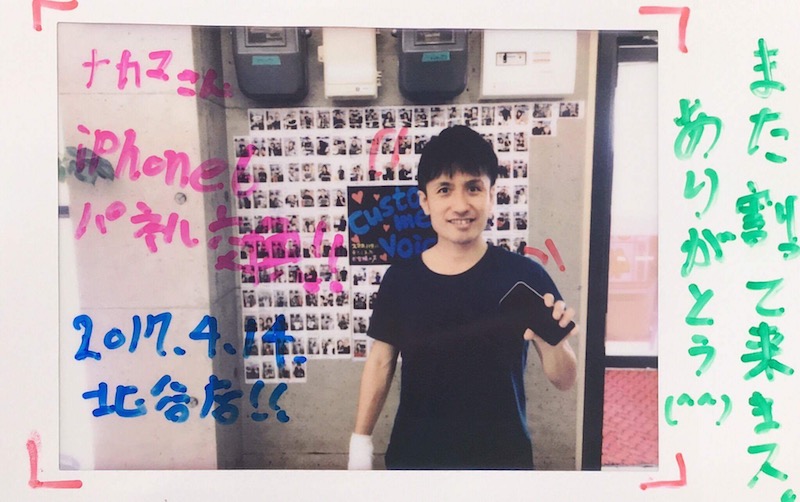 ナカマさん
iPhone6
パネル交換!!
2017.4.14.
北谷店!!
Custo
me
Voic
また割って来まス。
ありがとう(^^)